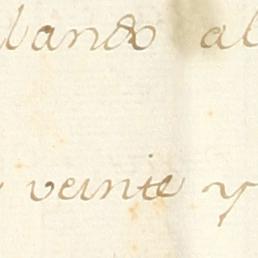 bando al
veinte y